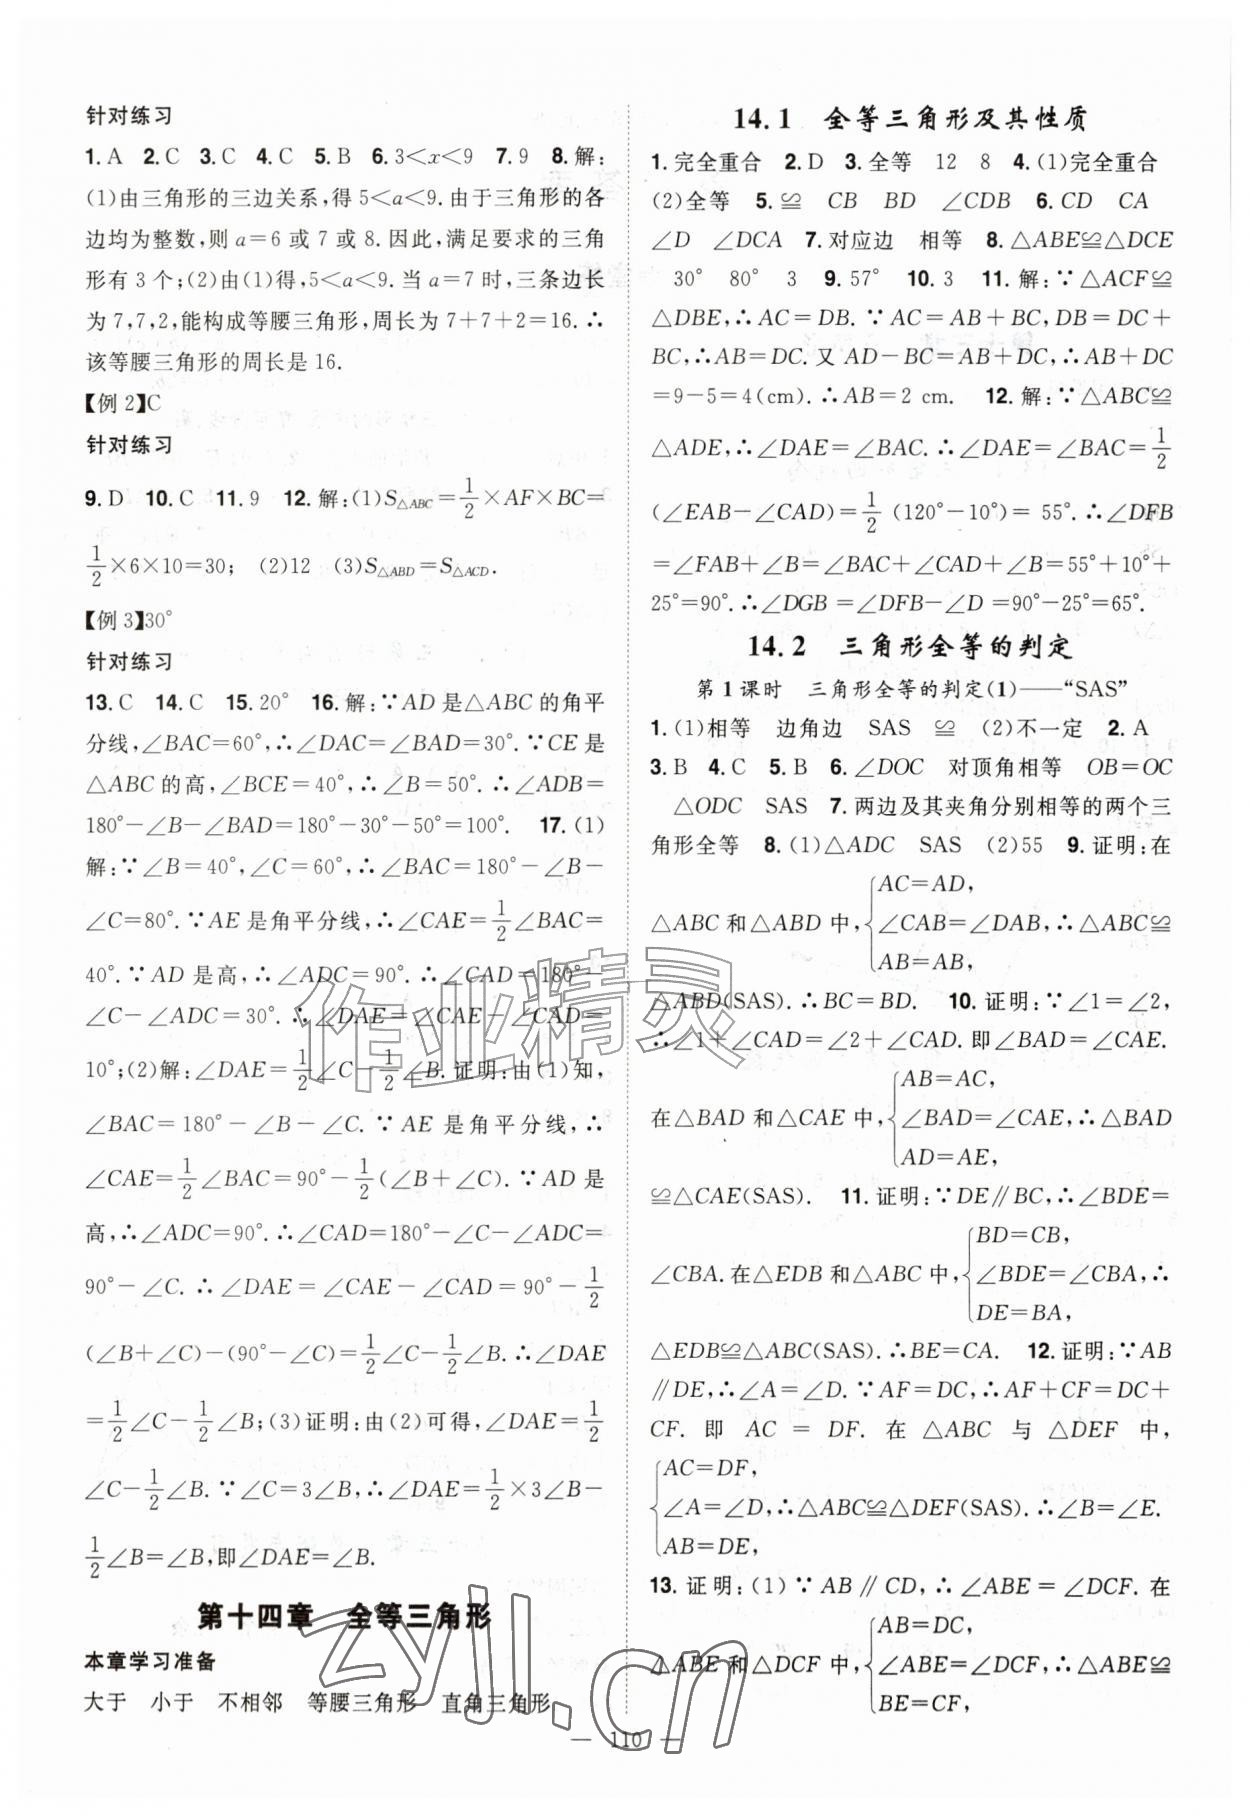 针对练习
1. A 2. C 3. C 4. C 5. B 6. 3<x<9 7. 9 8. 解:
(1)由三角形的三边关系,得 5<a<9. 由于三角形的各
边均为整数,则 a=6 或 7 或 8. 因此,满足要求的三角
形有 3 个;(2)由(1)得,5<a<9. 当 a=7 时,三条边长
为 7,7,2,能构成等腰三角形,周长为 7+7+2=16. ∴
该等腰三角形的周长是 16.
【例 2】C
针对练习
9. D 10. C 11. 9 12. 解:(1)S△ABC=1/2×AF×BC=
1/2×6×10=30; (2)12 (3)S△ABD=S△ACD.
【例 3】30°
针对练习
13. C 14. C 15. 20° 16. 解:∵AD是△ABC的角平
分线,∠BAC=60°,∴∠DAC=∠BAD=30°.∵CE是
△ABC的高,∠BCE=40°,∴∠B=50°.∴∠ADB=
180°-∠B-∠BAD=180°-30°-50°=100°. 17. (1)
解:∵∠B=40°,∠C=60°,∴∠BAC=180°-∠B-
∠C=80°.∵AE是角平分线,∴∠CAE=1/2∠BAC=
40°.∵AD是高,∴∠ADC=90°.∴∠CAD=180°-
∠C-∠ADC=30°.∴∠DAE=∠CAE-∠CAD=
10°;(2)解:∠DAE=1/2∠C-1/2∠B.证明:由(1)知,
∠BAC=180°-∠B-∠C.∵AE是角平分线,∴
∠CAE=1/2∠BAC=90°-1/2(∠B+∠C).∵AD是
高,∴∠ADC=90°.∴∠CAD=180°-∠C-∠ADC=
90°-∠C.∴∠DAE=∠CAE-∠CAD=90°-1/2
(∠B+∠C)-(90°-∠C)=1/2∠C-1/2∠B.∴∠DAE
=1/2∠C-1/2∠B;(3)证明:由(2)可得,∠DAE=1/2
∠C-1/2∠B.∵∠C=3∠B,∴∠DAE=1/2×3∠B-
1/2∠B=∠B,即∠DAE=∠B.
第十四章 全等三角形
本章学习准备
大于 小于 不相邻 等腰三角形 直角三角形
14.1 全等三角形及其性质
1. 完全重合 2. D 3. 全等 12 8 4. (1)完全重合
(2)全等 5. ≌ CB BD ∠CDB 6. CD CA
∠D ∠DCA 7. 对应边 相等 8. △ABE≌△DCE
30° 80° 3 9. 57° 10. 3 11. 解:∵△ACF≌
△DBE,∴AC=DB.∵AC=AB+BC,DB=DC+
BC,∴AB=DC.又AD-BC=AB+DC,∴AB+DC
=9-5=4(cm).∴AB=2 cm. 12. 解:∵△ABC≌
△ADE,∴∠DAE=∠BAC.∴∠DAE=∠BAC=1/2
(∠EAB-∠CAD)=1/2(120°-10°)=55°.∴∠DFB
=∠FAB+∠B=∠BAC+∠CAD+∠B=55°+10°+
25°=90°.∴∠DGB=∠DFB-∠D=90°-25°=65°.
14.2 三角形全等的判定
第1课时 三角形全等的判定(1)——“SAS”
1. (1)相等 边角边 SAS ≌ (2)不一定 2. A
3. B 4. C 5. B 6. ∠DOC 对顶角相等 OB=OC
△ODC SAS 7. 两边及其夹角分别相等的两个三
角形全等 8. (1)△ADC SAS (2)55 9. 证明:在
AC=AD,
△ABC和△ABD中,{∠CAB=∠DAB,∴△ABC≌
AB=AB,
△ABD(SAS).∴BC=BD. 10. 证明:∵∠1=∠2,
∴∠1+∠CAD=∠2+∠CAD.即∠BAD=∠CAE.
AB=AC,
在△BAD和△CAE中,{∠BAD=∠CAE,∴△BAD
AD=AE,
≌△CAE(SAS). 11. 证明:∵DE∥BC,∴∠BDE=
BD=CB,
∠CBA.在△EDB和△ABC中,{∠BDE=∠CBA,∴
DE=BA,
△EDB≌△ABC(SAS).∴BE=CA. 12. 证明:∵AB
∥DE,∴∠A=∠D.∵AF=DC,∴AF+CF=DC+
CF.即 AC=DF.在△ABC与△DEF中,
AC=DF,
{∠A=∠D,∴△ABC≌△DEF(SAS).∴∠B=∠E.
AB=DE,
13. 证明:(1)∵AB∥CD,∴∠ABE=∠DCF.在
AB=DC,
△ABE和△DCF中,{∠ABE=∠DCF,∴△ABE≌
BE=CF,
— 110 —
作业精灵
zyjl.cn